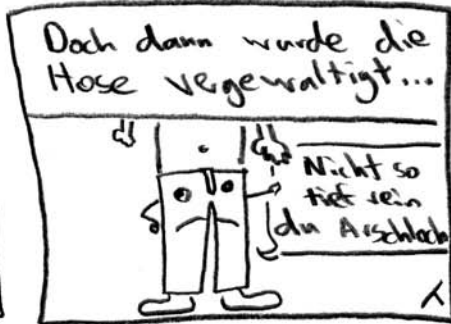 Doch dann wurde die
Hose vergewaltigt...
Nicht so
tief rein
du Arschloch